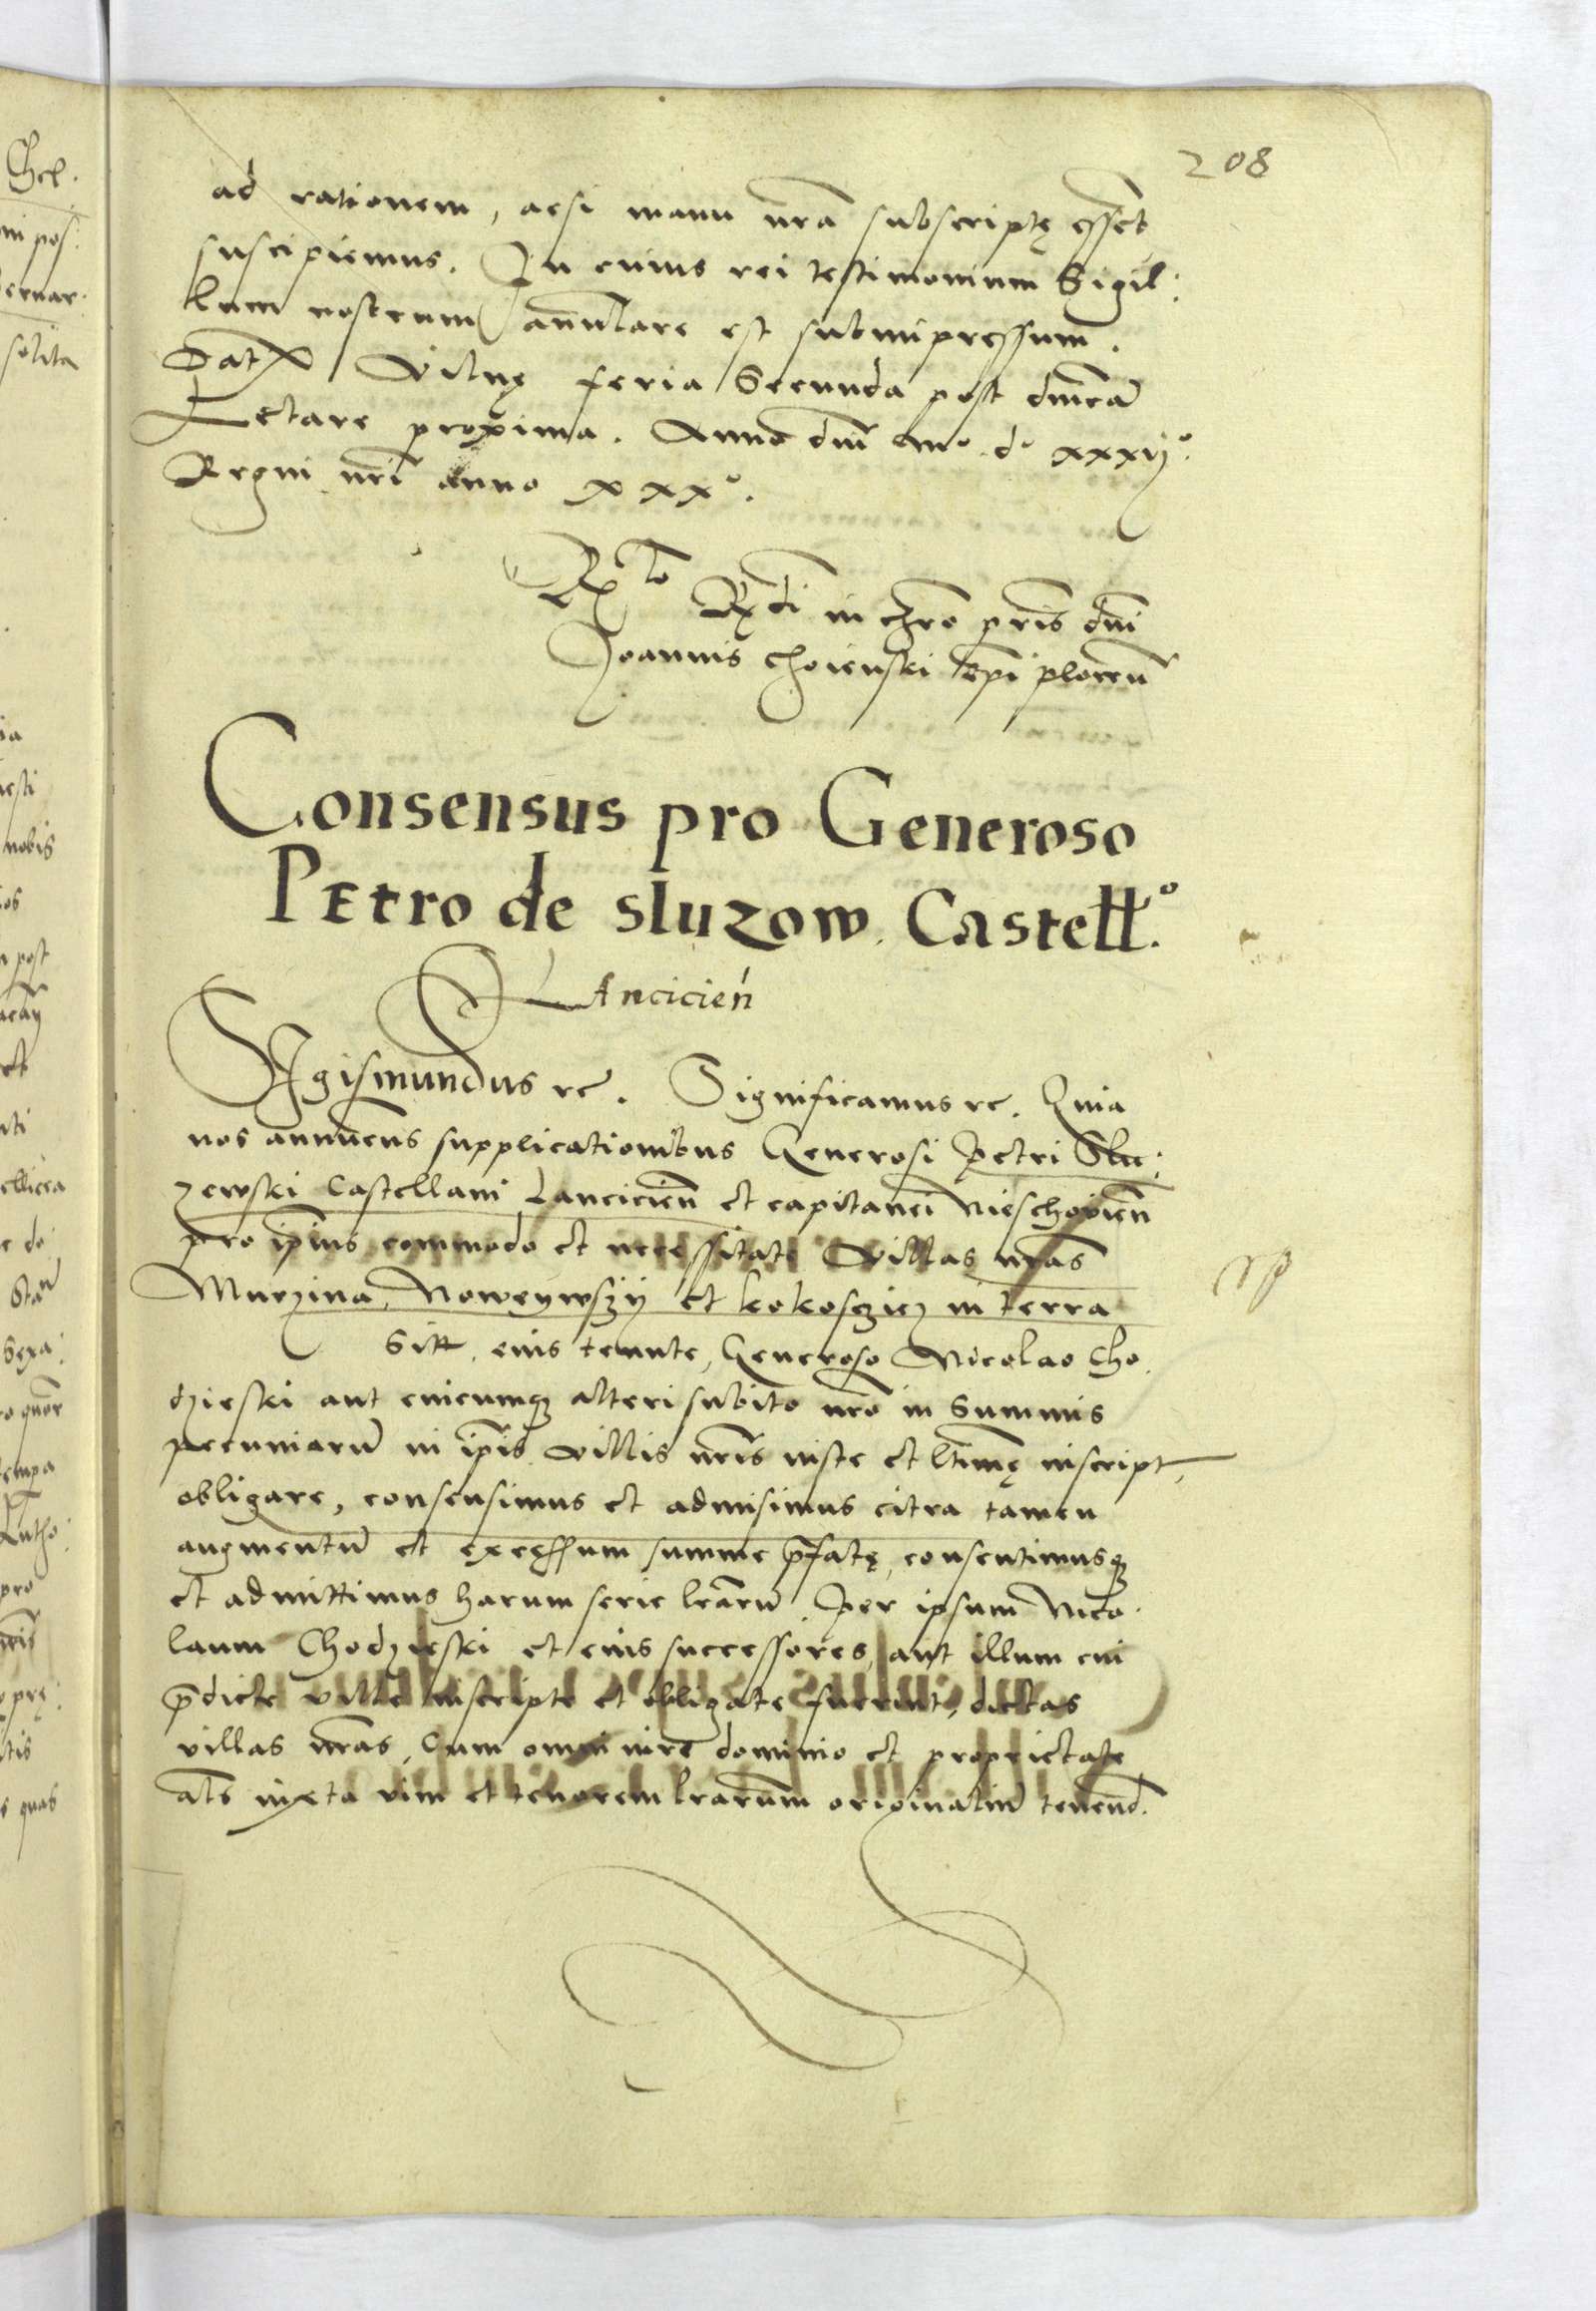 208
ad rationem, acsi manu nrã subscriptę essent
suscipiemus. In cuius rei testimonium Sigil:
lum nostrum annulare est subimpressum.
Dat Vilnę feria Secunda post dnicã
Letare proxima. Anno dni mº. dº xxxijº.
Regni nri anno xxxº.
Rlo Rdi in chro pris dni
Joannis choienski Epi plocen
Consensus pro Generoso
Petro de sluzow Castellº.
Lancicień
Sigismundus rc. Significamus rc. Quia
nos annuens supplicationibus Generosi Petri Slu:
zewski Castellani Lancicien et capitanei Nieschovien
pro ipius commodo et necessitate Villas nras
Murzina, Noweywszy et kokosczicz in terra
Sitt. eius tenute, Generoso Nicolao Cho
dzieski aut cuicumq alteri subdito nro in Summis
pecuniarũ in ipis villis nris iuste et ltimę inscript,
obligare, consensimus et admisimus citra tamen
augmentũ et excessum summe pfatę, consentimusq
et admittimus harum serie lrarũ. Per ipsum Nico
laum Chodzieski et eius successores, aut illum cui
pdicte ville inscripte et obligate fuerint, dictas
villas nras, Cum omni iure dominio et proprietate
als iuxta vim et tenorem lrarum originaliũ tenend.